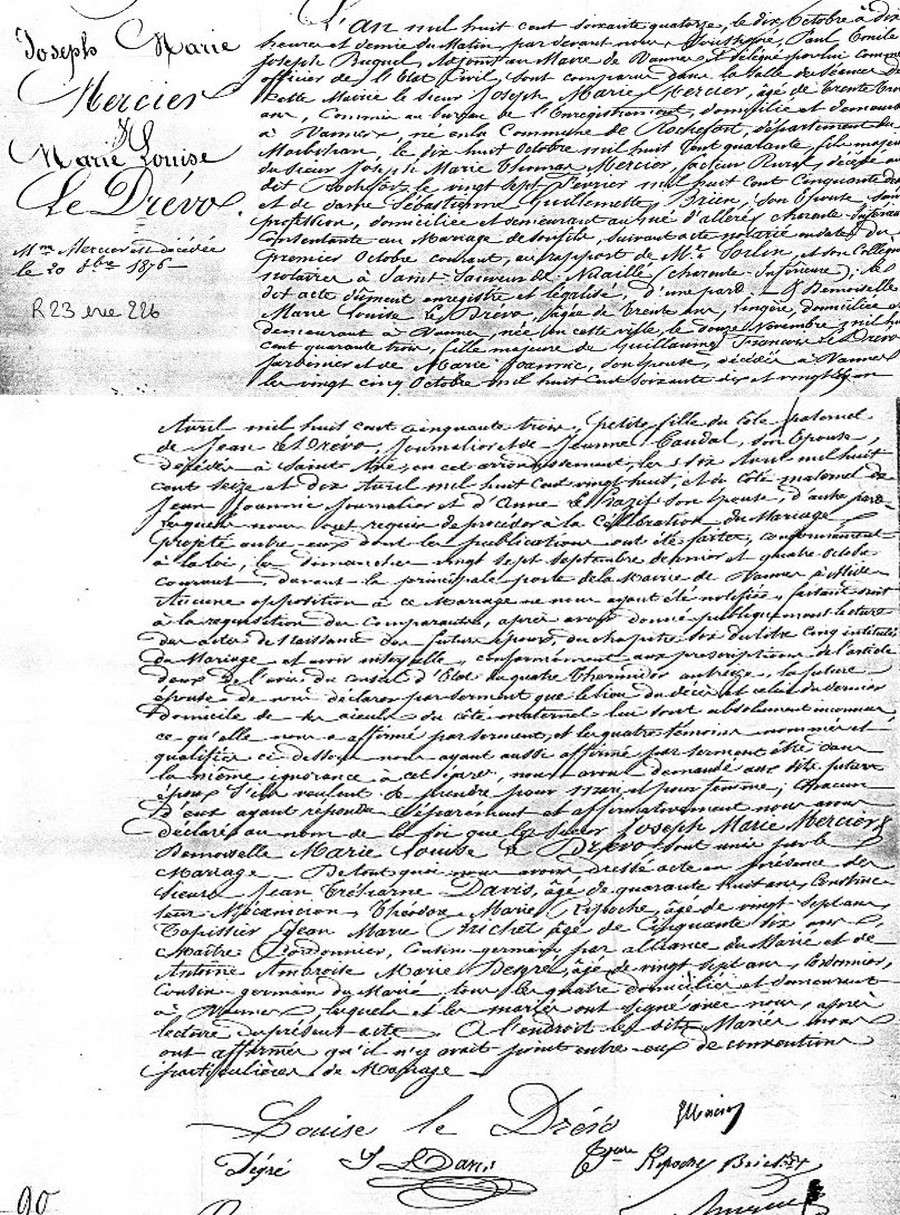 Joseph Marie
Mercier
&
Marie Louise
Le Drévo.
Mme Mercier est décédée
le 20 8bre 1876
R23 vue 226
L'An mil huit cent soixante quatorze, le dix Octobre à dix
heures et demie du Matin, par devant nous, Soussigné, Paul Emile
Joseph Buquel, Adjoint au Maire de Vannes et délégué par lui comme
officier de l'Etat Civil, sont comparus dans la Salle des Séances de
cette Mairie le Sieur Joseph Marie Mercier, âgé de trente trois
ans, Commis au bureau de l'Enregistrement, domicilié et demeurant
à Vannes, né en la Commune de Rochefort, département du
Morbihan, le dix huit Octobre mil huit cent quarante, fils majeur
du Sieur Joseph Marie Thomas Mercier, facteur Rural, décédé au
dit Rochefort le vingt sept Février mil huit cent cinquante deux
et de dame Sébastienne Guillemette Brien, son Epouse, sans
profession, domiciliée et demeurant au Gué d'alleré, charente Inférieure
Consentante au Mariage de son fils, suivant acte notarié en date du
premier Octobre courant, au rapport de Me Sorlin et son Collègue
notaires à Saint Sauveur de Nuaillé (charente Inférieure); le
dit acte dûment enregistré et légalisé, d'une part & Demoiselle
Marie Louise Le Drévo, âgée de trente ans, lingère, domiciliée et
demeurant à Vannes, née en cette ville, le douze Novembre mil huit
cent quarante trois, fille majeure de Guillaume François Le Drévo
Jardinier et de Marie Joannic, son Epouse, décédés à Vannes
les vingt cinq Octobre mil huit cent soixante dix et vingt un
Avril mil huit cent cinquante trois, petite fille du côté paternel
de Jean Le Drévo, Journalier et de Jeanne Caudal, son Epouse,
décédés à Saint Avé, en cet arrondissement, les six Avril mil huit
cent seize et dix Avril mil huit cent vingt huit, et du côté maternel de
Jean Joannic Journalier et d'Anne Le son Epouse, d'autre part
Lesquels nous ont requis de procéder à la célébration du Mariage
projeté entre eux dont les publications ont été faites, conformément
à la loi, les dimanches vingt sept septembre dernier et quatre Octobre
courant, devant la principale porte de la Mairie de Vannes
Aucune opposition à ce Mariage ne nous ayant été notifiée, faisant droit
à la requisition des Comparants, après avoir donné publiquement lecture
des actes de Naissance des futurs époux, du chapitre six du titre cinq intitulé
du Mariage et avoir interpellé, conformément aux prescriptions de l'article
deux de l'avis du conseil d'Etat du quatre thermidor an treize, la future
épouse de nous déclarer par serment que le lieu du décès et celui du dernier
domicile de ses aieuls du côté maternel lui sont absolument inconnus
ce qu'elle nous a affirmé par serment, et les quatre témoins nommés et
qualifiés ci-dessous nous ayant aussi affirmé par serment être dans
la même ignorance à cet égard, nous avons demandé aux dits futurs
époux s'ils veulent se prendre pour mari et pour femme; chacun
d'eux ayant répondu séparément et affirmativement nous avons
déclaré au nom de la loi que le Sieur Joseph Marie Mercier &
Demoiselle Marie Louise Le Drévo sont unis par le
Mariage De tout quoi nous avons dressé acte en présence des
Sieurs Jean Tréharne Davis, âgé de quarante huit ans, Construc-
teur Mécanicien, Théodore Marie Ripoche, âgé de vingt sept ans,
Tapissier, Jean Marie âgé de Cinquante six ans,
Maître Cordonnier, cousin germain par alliance du Marié et de
Antoine Ambroise Marie Degré, âgé de vingt sept ans, Cordonnier,
Cousin germain du Marié, tous les quatre domiciliés et demeurant
à Vannes, lesquels et les mariés ont signé avec nous, après
lecture du présent acte. A l'endroit les dits Mariés nous
ont affirmé qu'il n'y avait point entre eux de conventions
particulières de Mariage
Louise le Drévo
JMercier
Dégré
J. T. Davis
Ripoche
90